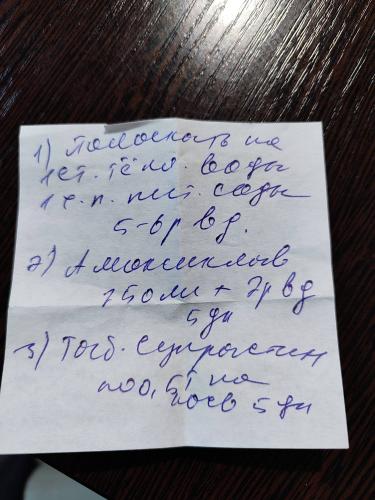 1) Полоскать на
1 ст. тёпл. воды
1 ч. л. пит. соды
5-6 р в д.
2) Амоксиклав
250 мл + 2 р в д
5 дн
3) Таб. Супрастин
по 0,5 т на
5 дн